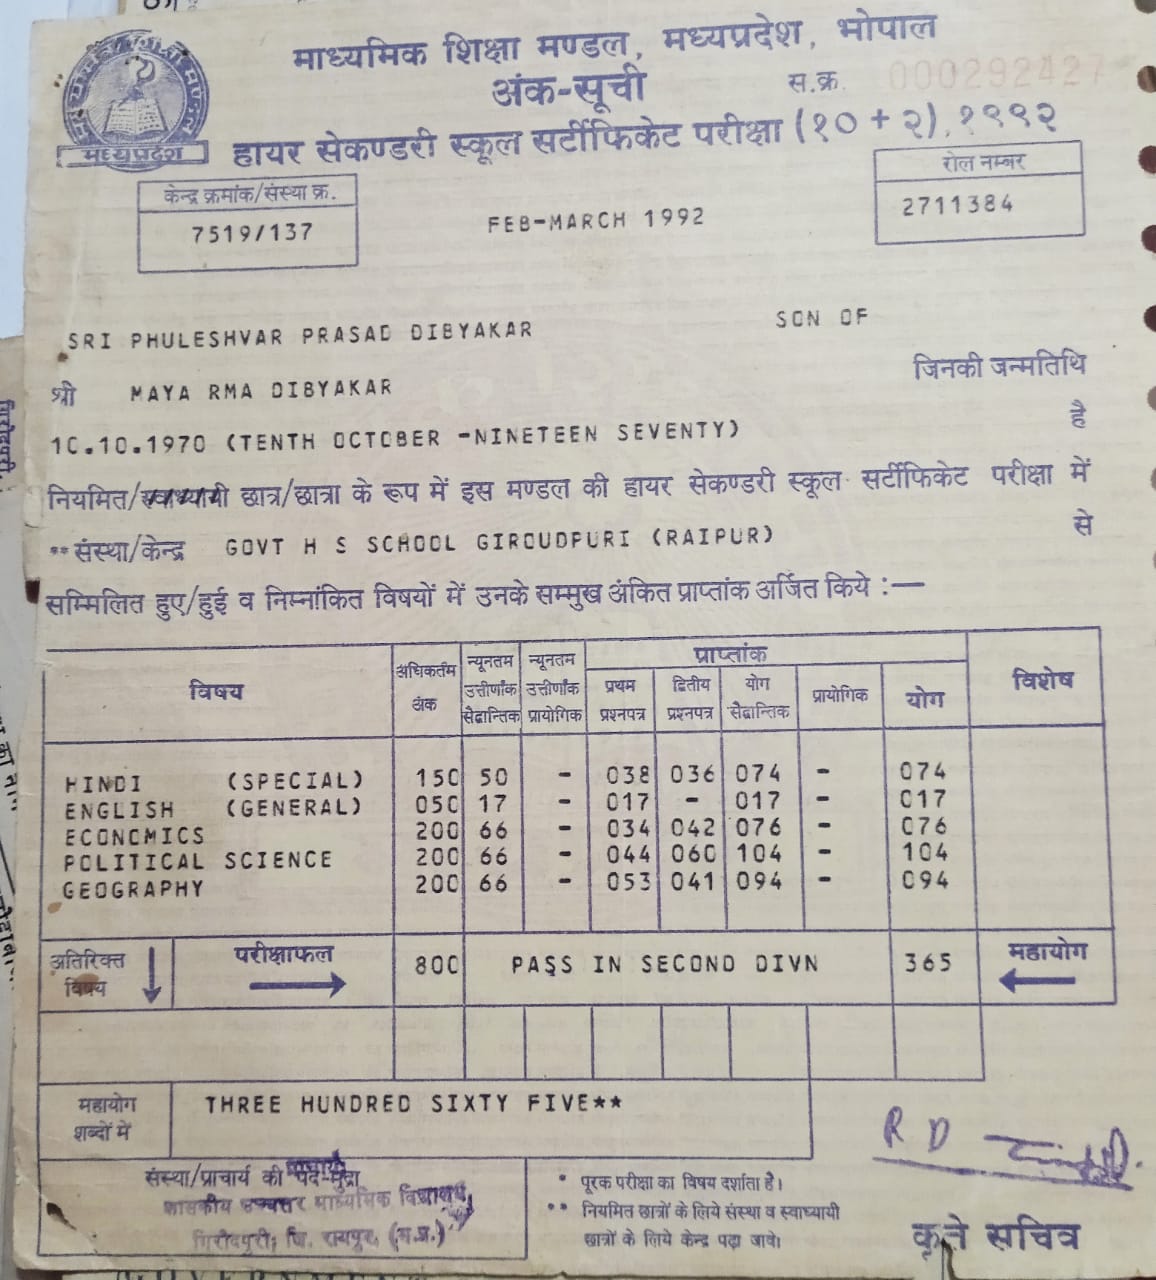 माध्यमिक शिक्षा मण्डल, मध्यप्रदेश, भोपाल
अंक-सूची
स.क्र. 000292427
हायर सेकण्डरी स्कूल सर्टीफिकेट परीक्षा (१० + २), १९९२
मध्यप्रदेश
केन्द्र क्रमांक/संस्था क्र.
7519/137
FEB-MARCH 1992
रोल नम्बर
2711384
SRI PHULESHVAR PRASAD DIBYAKAR SON OF
श्री MAYA RMA DIBYAKAR जिनकी जन्मतिथि
10.10.1970 (TENTH OCTOBER -NINETEEN SEVENTY) है
नियमित/स्वाध्यायी छात्र/छात्रा के रूप में इस मण्डल की हायर सेकण्डरी स्कूल सर्टीफिकेट परीक्षा में
**संस्था/केन्द्र GOVT H S SCHOOL GIROUDPURI (RAIPUR) से
सम्मिलित हुए/हुई व निम्नांकित विषयों में उनके सम्मुख अंकित प्राप्तांक अर्जित किये :—
विषय अधिकतम अंक न्यूनतम उत्तीर्णांक सैद्धान्तिक न्यूनतम उत्तीर्णांक प्रायोगिक प्राप्तांक विशेष
प्रथम प्रश्नपत्र द्वितीय प्रश्नपत्र योग सैद्धान्तिक प्रायोगिक योग
HINDI (SPECIAL) 150 50 - 038 036 074 - 074
ENGLISH (GENERAL) 050 17 - 017 - 017 - 017
ECONOMICS 200 66 - 034 042 076 - 076
POLITICAL SCIENCE 200 66 - 044 060 104 - 104
GEOGRAPHY 200 66 - 053 041 094 - 094
अतिरिक्त विषय परीक्षाफल 800 PASS IN SECOND DIVN 365 महायोग
महायोग शब्दों में THREE HUNDRED SIXTY FIVE**
R D
संस्था/प्राचार्य की पद-मुद्रा
प्राचार्य
शासकीय उच्चत्तर माध्यमिक विद्यालय,
गिरौदपुरी, जि. रायपुर, (म.प्र.)
* पूरक परीक्षा का विषय दर्शाता है।
** नियमित छात्रों के लिये संस्था व स्वाध्यायी
छात्रों के लिये केन्द्र पढ़ा जावे।
कृते सचिव